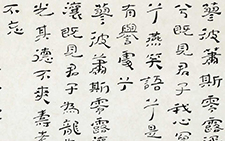 蓼彼蕭斯零露
兮既見君子我心寫
兮燕笑語兮是
有譽處兮
蓼彼蕭斯零露
瀼既見君子為龍
光其德不爽壽考
不忘